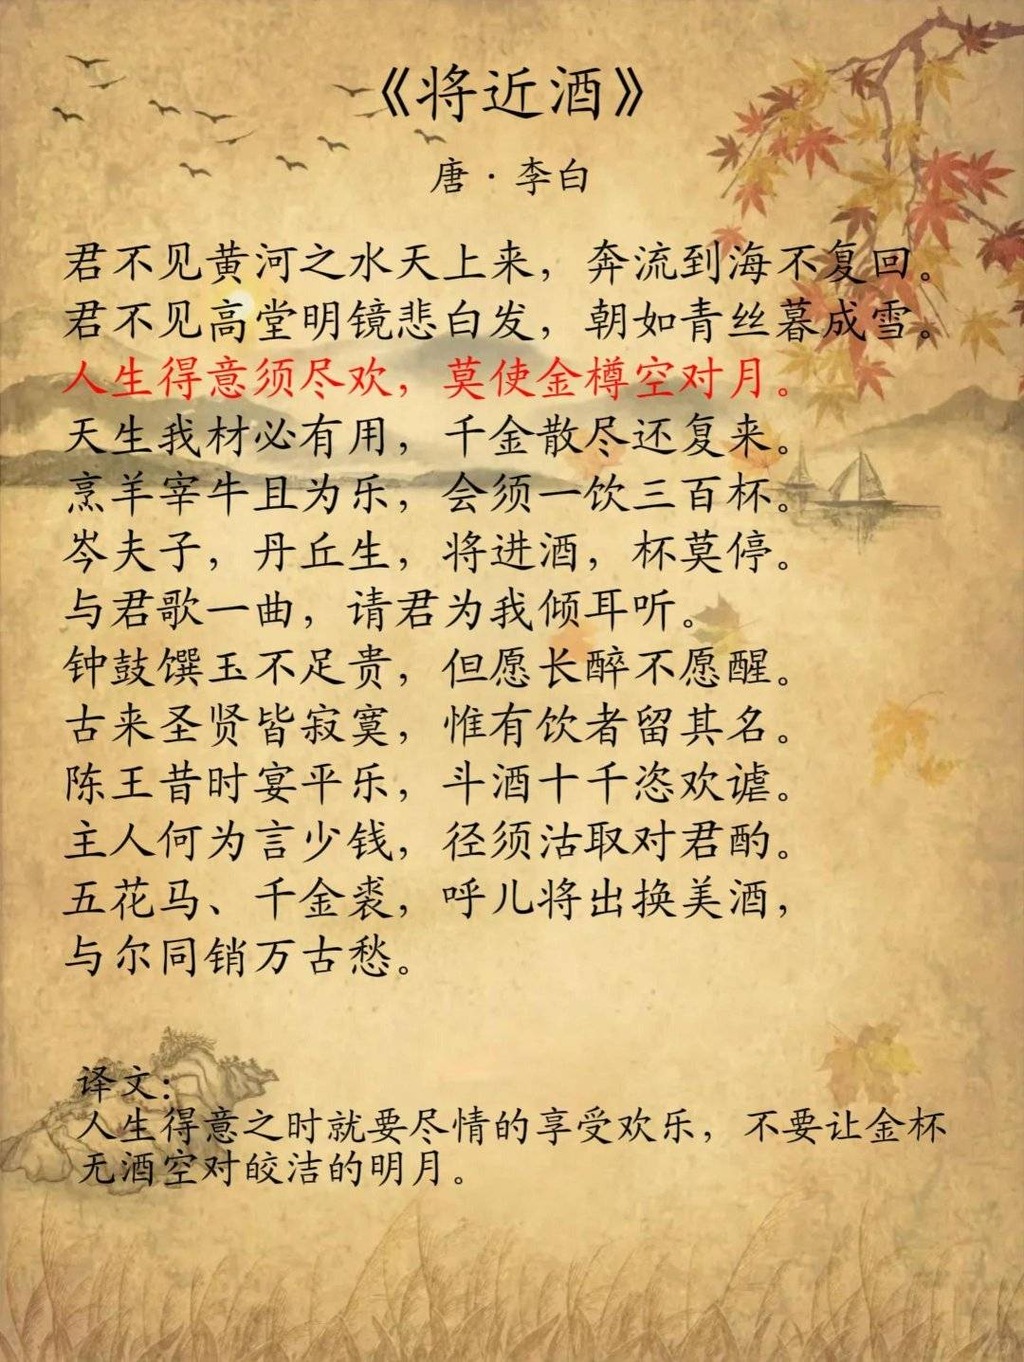 《将近酒》
唐·李白
君不见黄河之水天上来，奔流到海不复回。
君不见高堂明镜悲白发，朝如青丝暮成雪。
人生得意须尽欢，莫使金樽空对月。
天生我材必有用，千金散尽还复来。
烹羊宰牛且为乐，会须一饮三百杯。
岑夫子，丹丘生，将进酒，杯莫停。
与君歌一曲，请君为我倾耳听。
钟鼓馔玉不足贵，但愿长醉不愿醒。
古来圣贤皆寂寞，惟有饮者留其名。
陈王昔时宴平乐，斗酒十千恣欢谑。
主人何为言少钱，径须沽取对君酌。
五花马、千金裘，呼儿将出换美酒，
与尔同销万古愁。
译文：
人生得意之时就要尽情的享受欢乐，不要让金杯
无酒空对皎洁的明月。